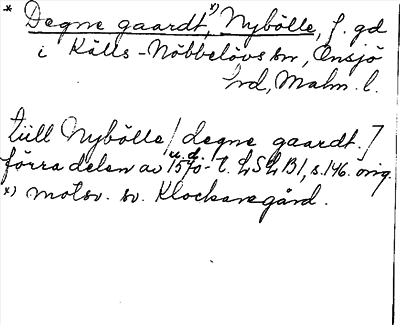 * Degne gaardt,*) Nybölle, f. gd
i Källs-Nöbbelövs sn, Onsjö
hd, Malm. l.
tiill Nybölle / degne gaardt. /
förra delen av 1570-t. LSLB1, s. 146. orig.
u.d.
*) motsv. sv. Klockaregård.